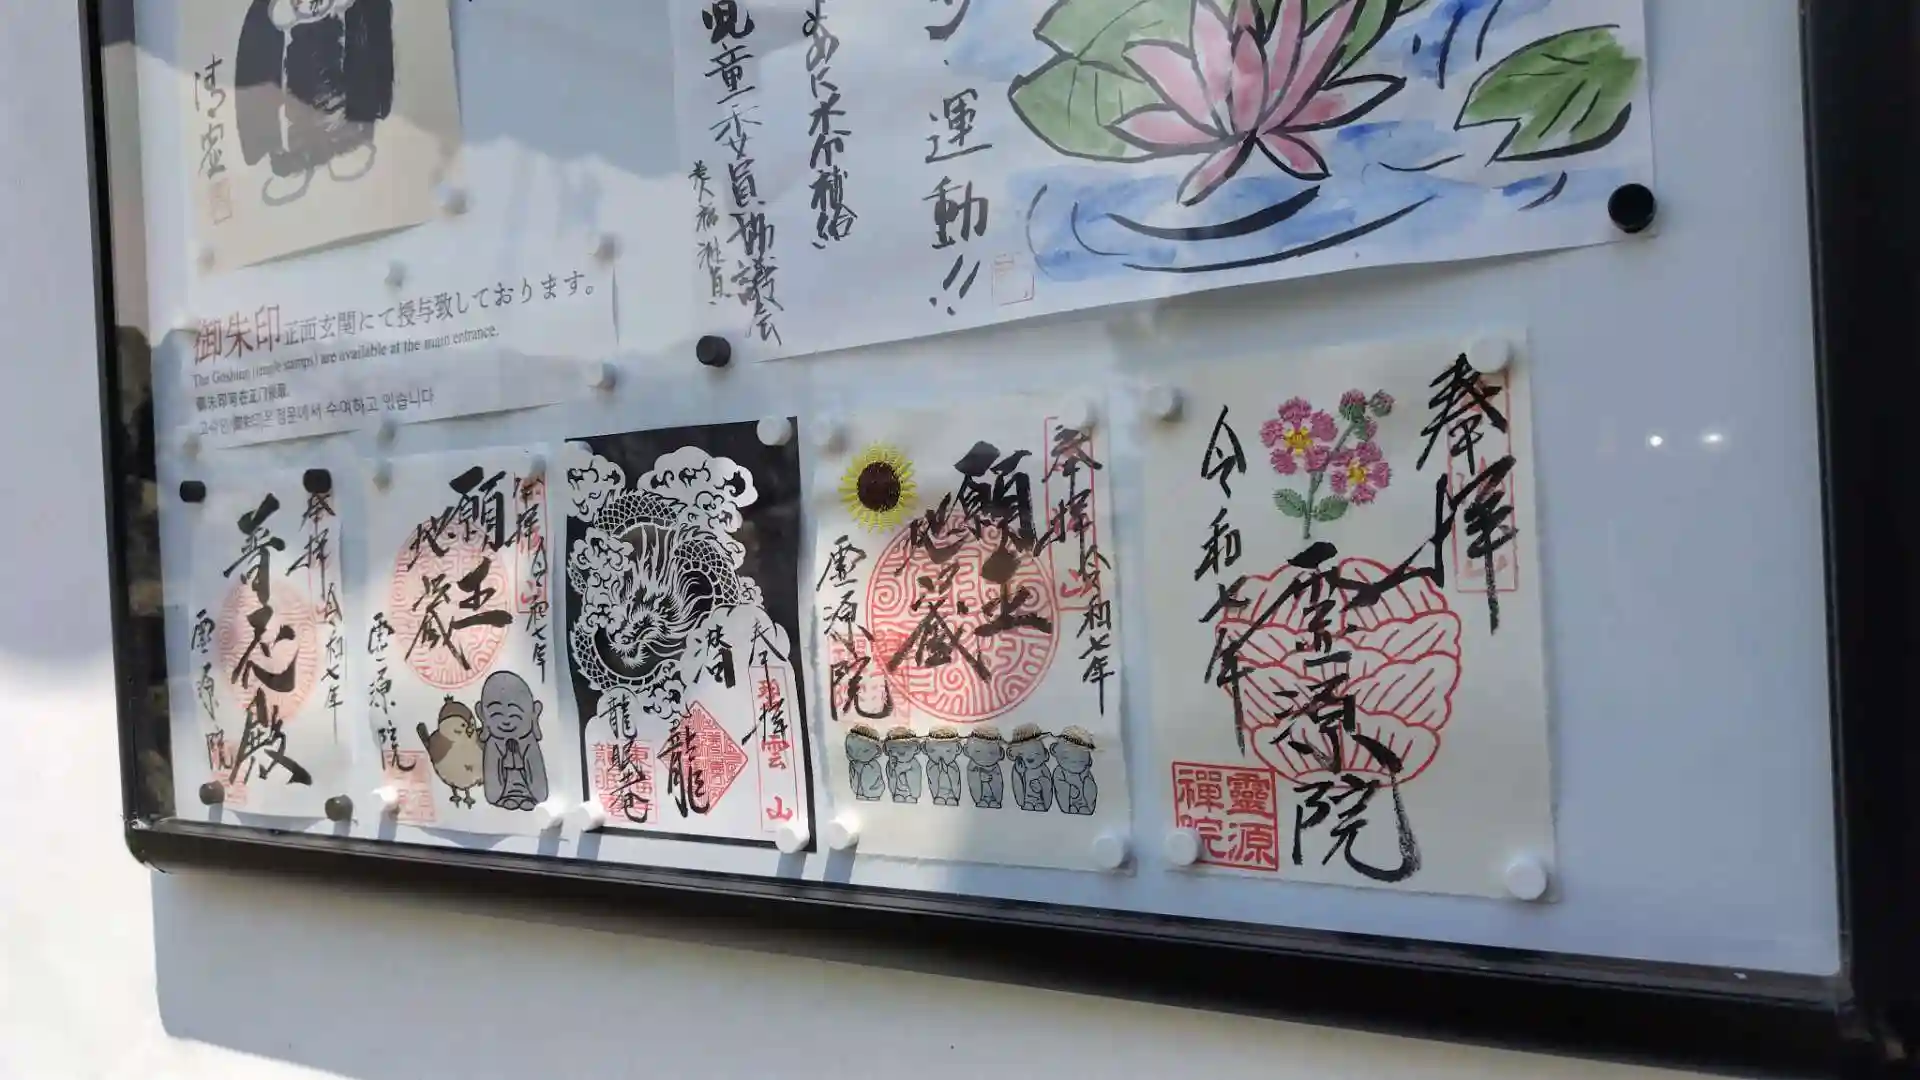 清宏
運動!!
ために水分補給
児童委員協議会
御朱印正面玄関にて授与致しております。
The Goshuin (temple stamps) are available at the main entrance.
御朱印可在正门领取
고슈인(御朱印)은 정문에서 수여하고 있습니다
奉拝 令和七年
善忍殿
霊源院
奉拝 令和七年
願王
地蔵
霊源院
奉拝
潜龍
龍眠菴
奉拝 令和七年
願王
地蔵
霊源院
奉拝
霊源院
令和七年
靈源
禪院